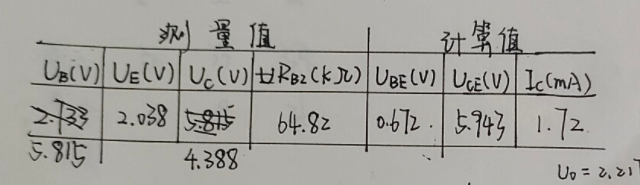 测量值 计算值
U_B(V) U_E(V) U_C(V) R_B2(kΩ) U_BE(V) U_CE(V) I_C(mA)
2.733 2.038 5.815 64.82 0.672 5.943 1.72
5.815 4.388
U_0 = 2.217